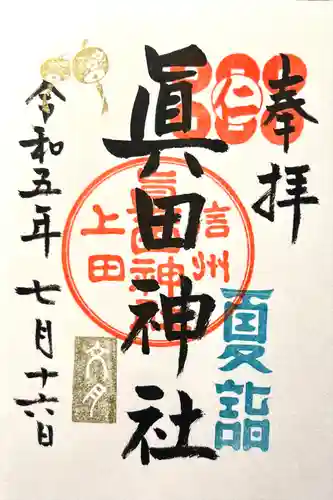 奉拝
仁
夏詣
眞田神社
信州
眞田神社
上田
令和五年七月十六日
文月